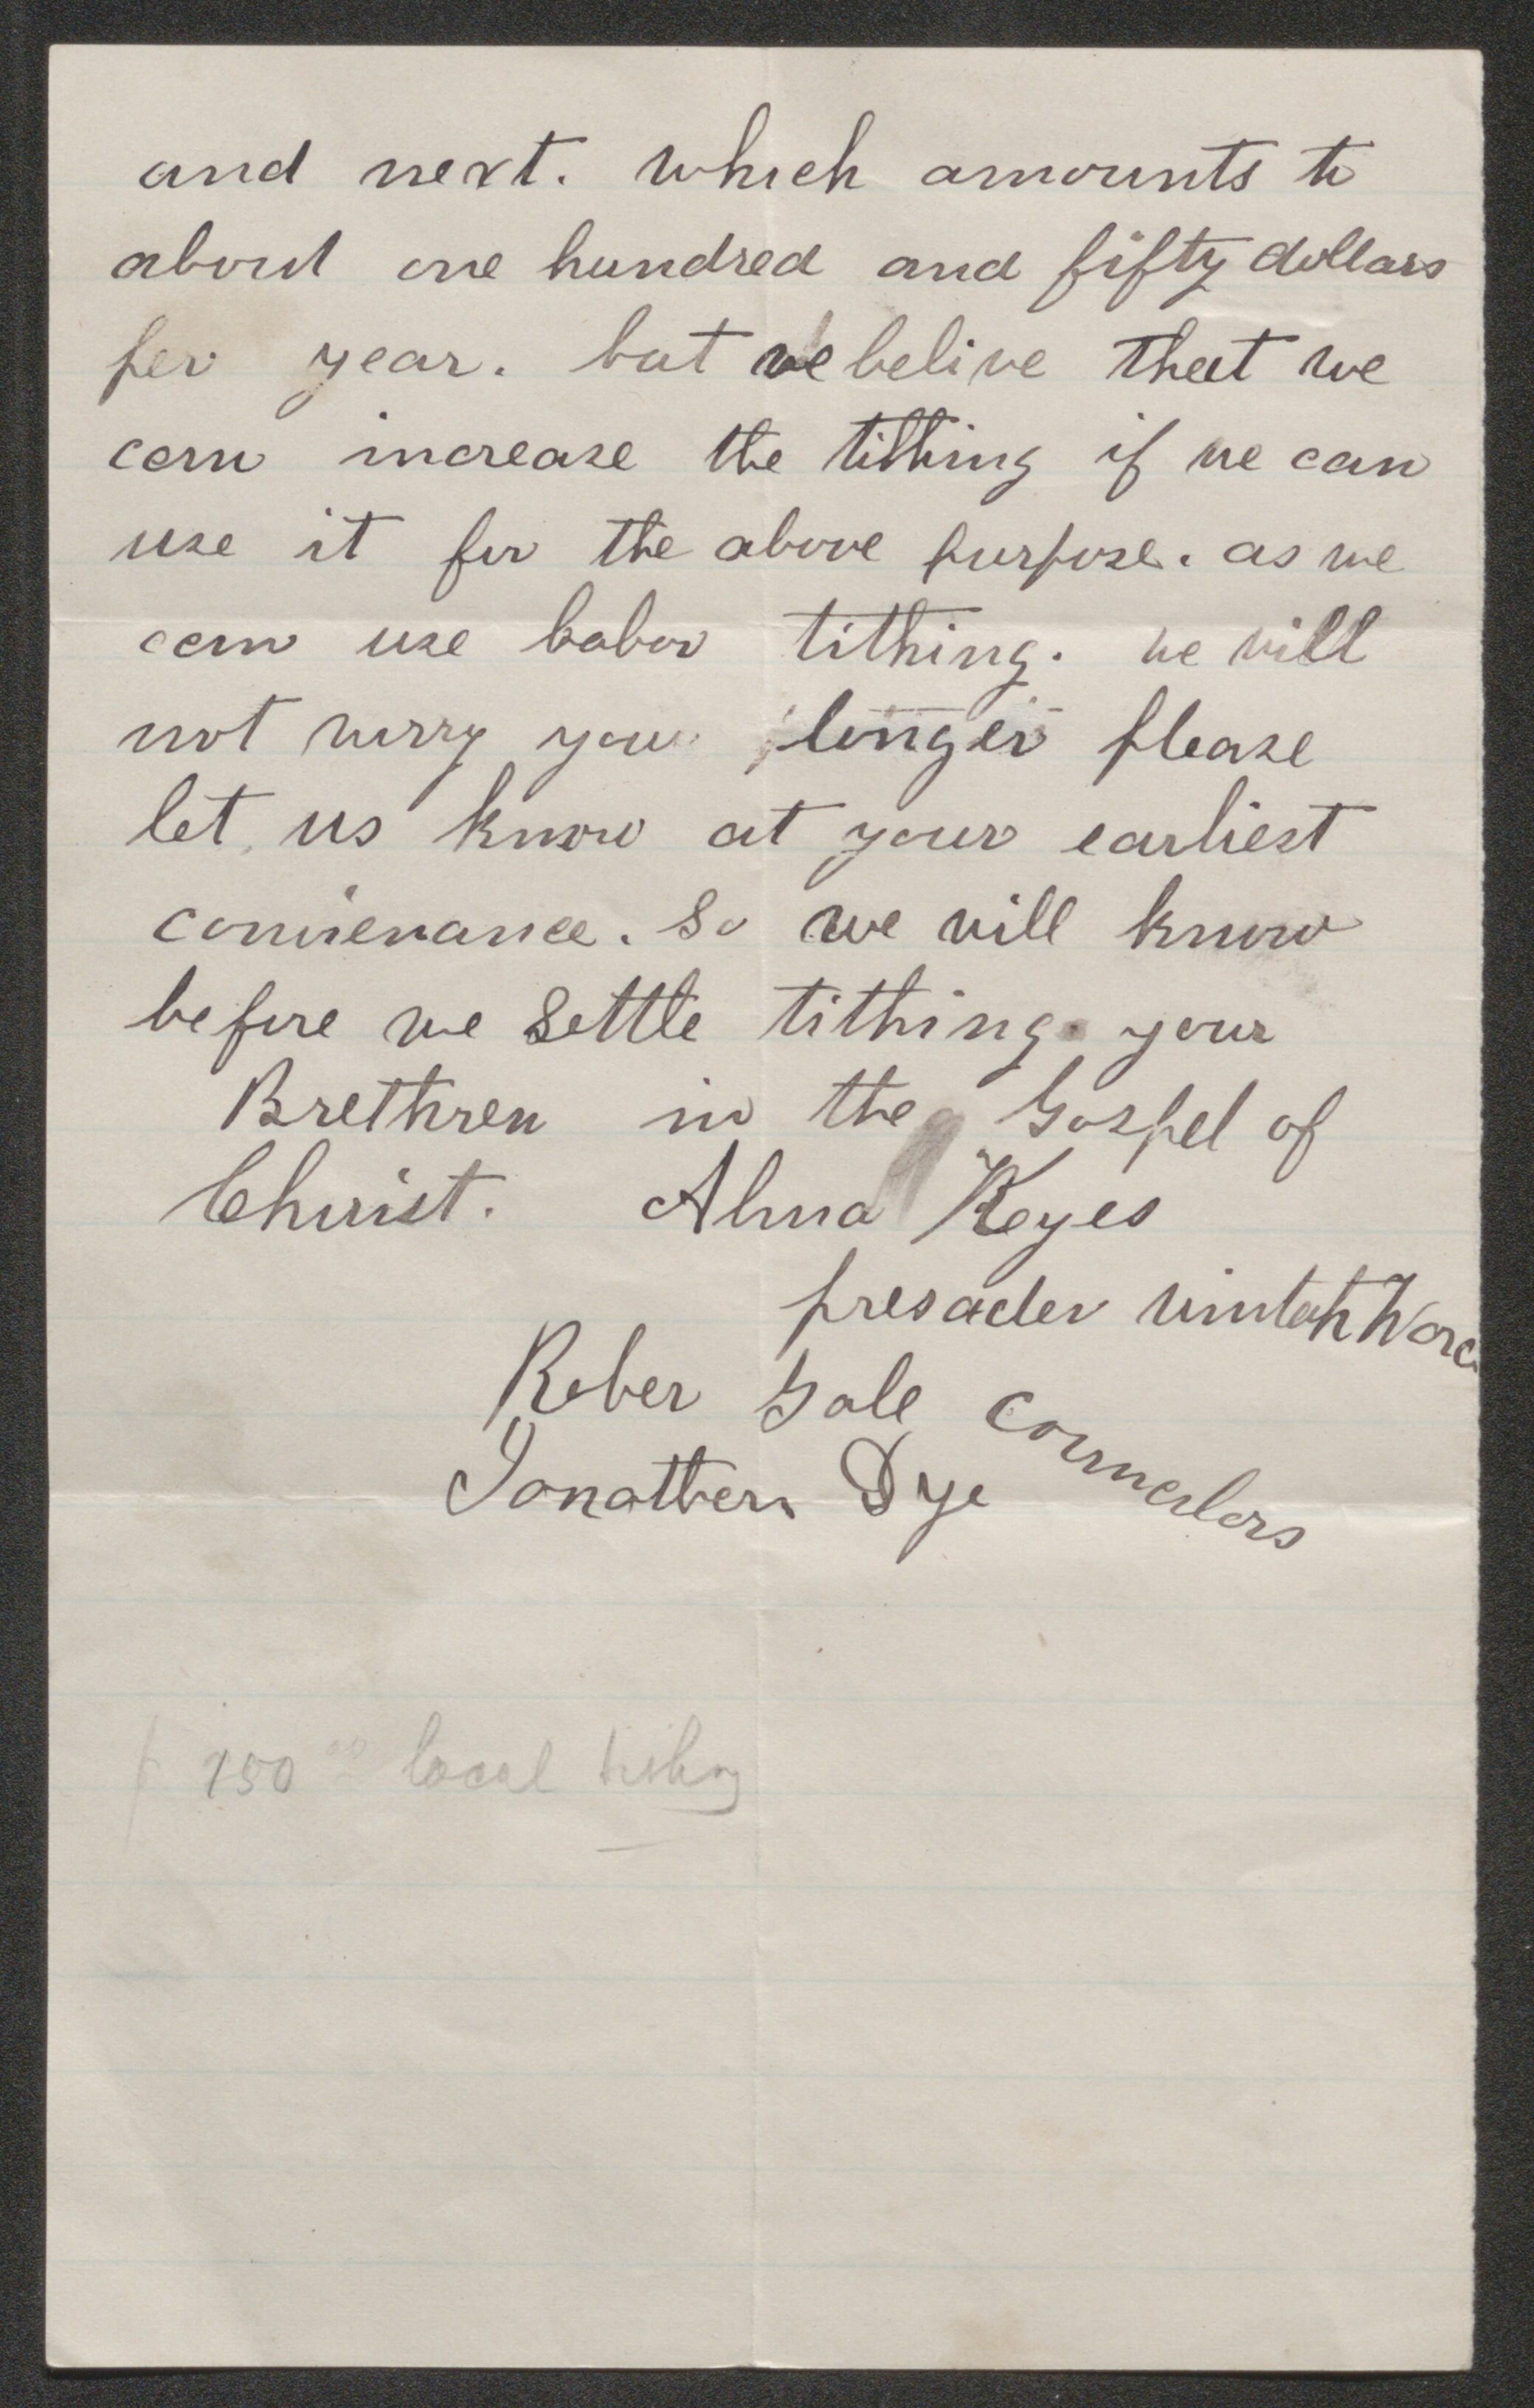 and next. which amounts to
about one hundred and fifty dollars
per year. but we belive that we
can increase the tithing if we can
use it for the above purpose. as we
can use labor tithing. we will
not wirry you longer please
let us know at your earliest
convienance. So we will know
before we Settle tithing. your
Brethren in the Gospel of
Christ. Alma Keyes
presader Uintah Ward
Reber Gale
Jonathern Dye
councelors
150 00 local tithing